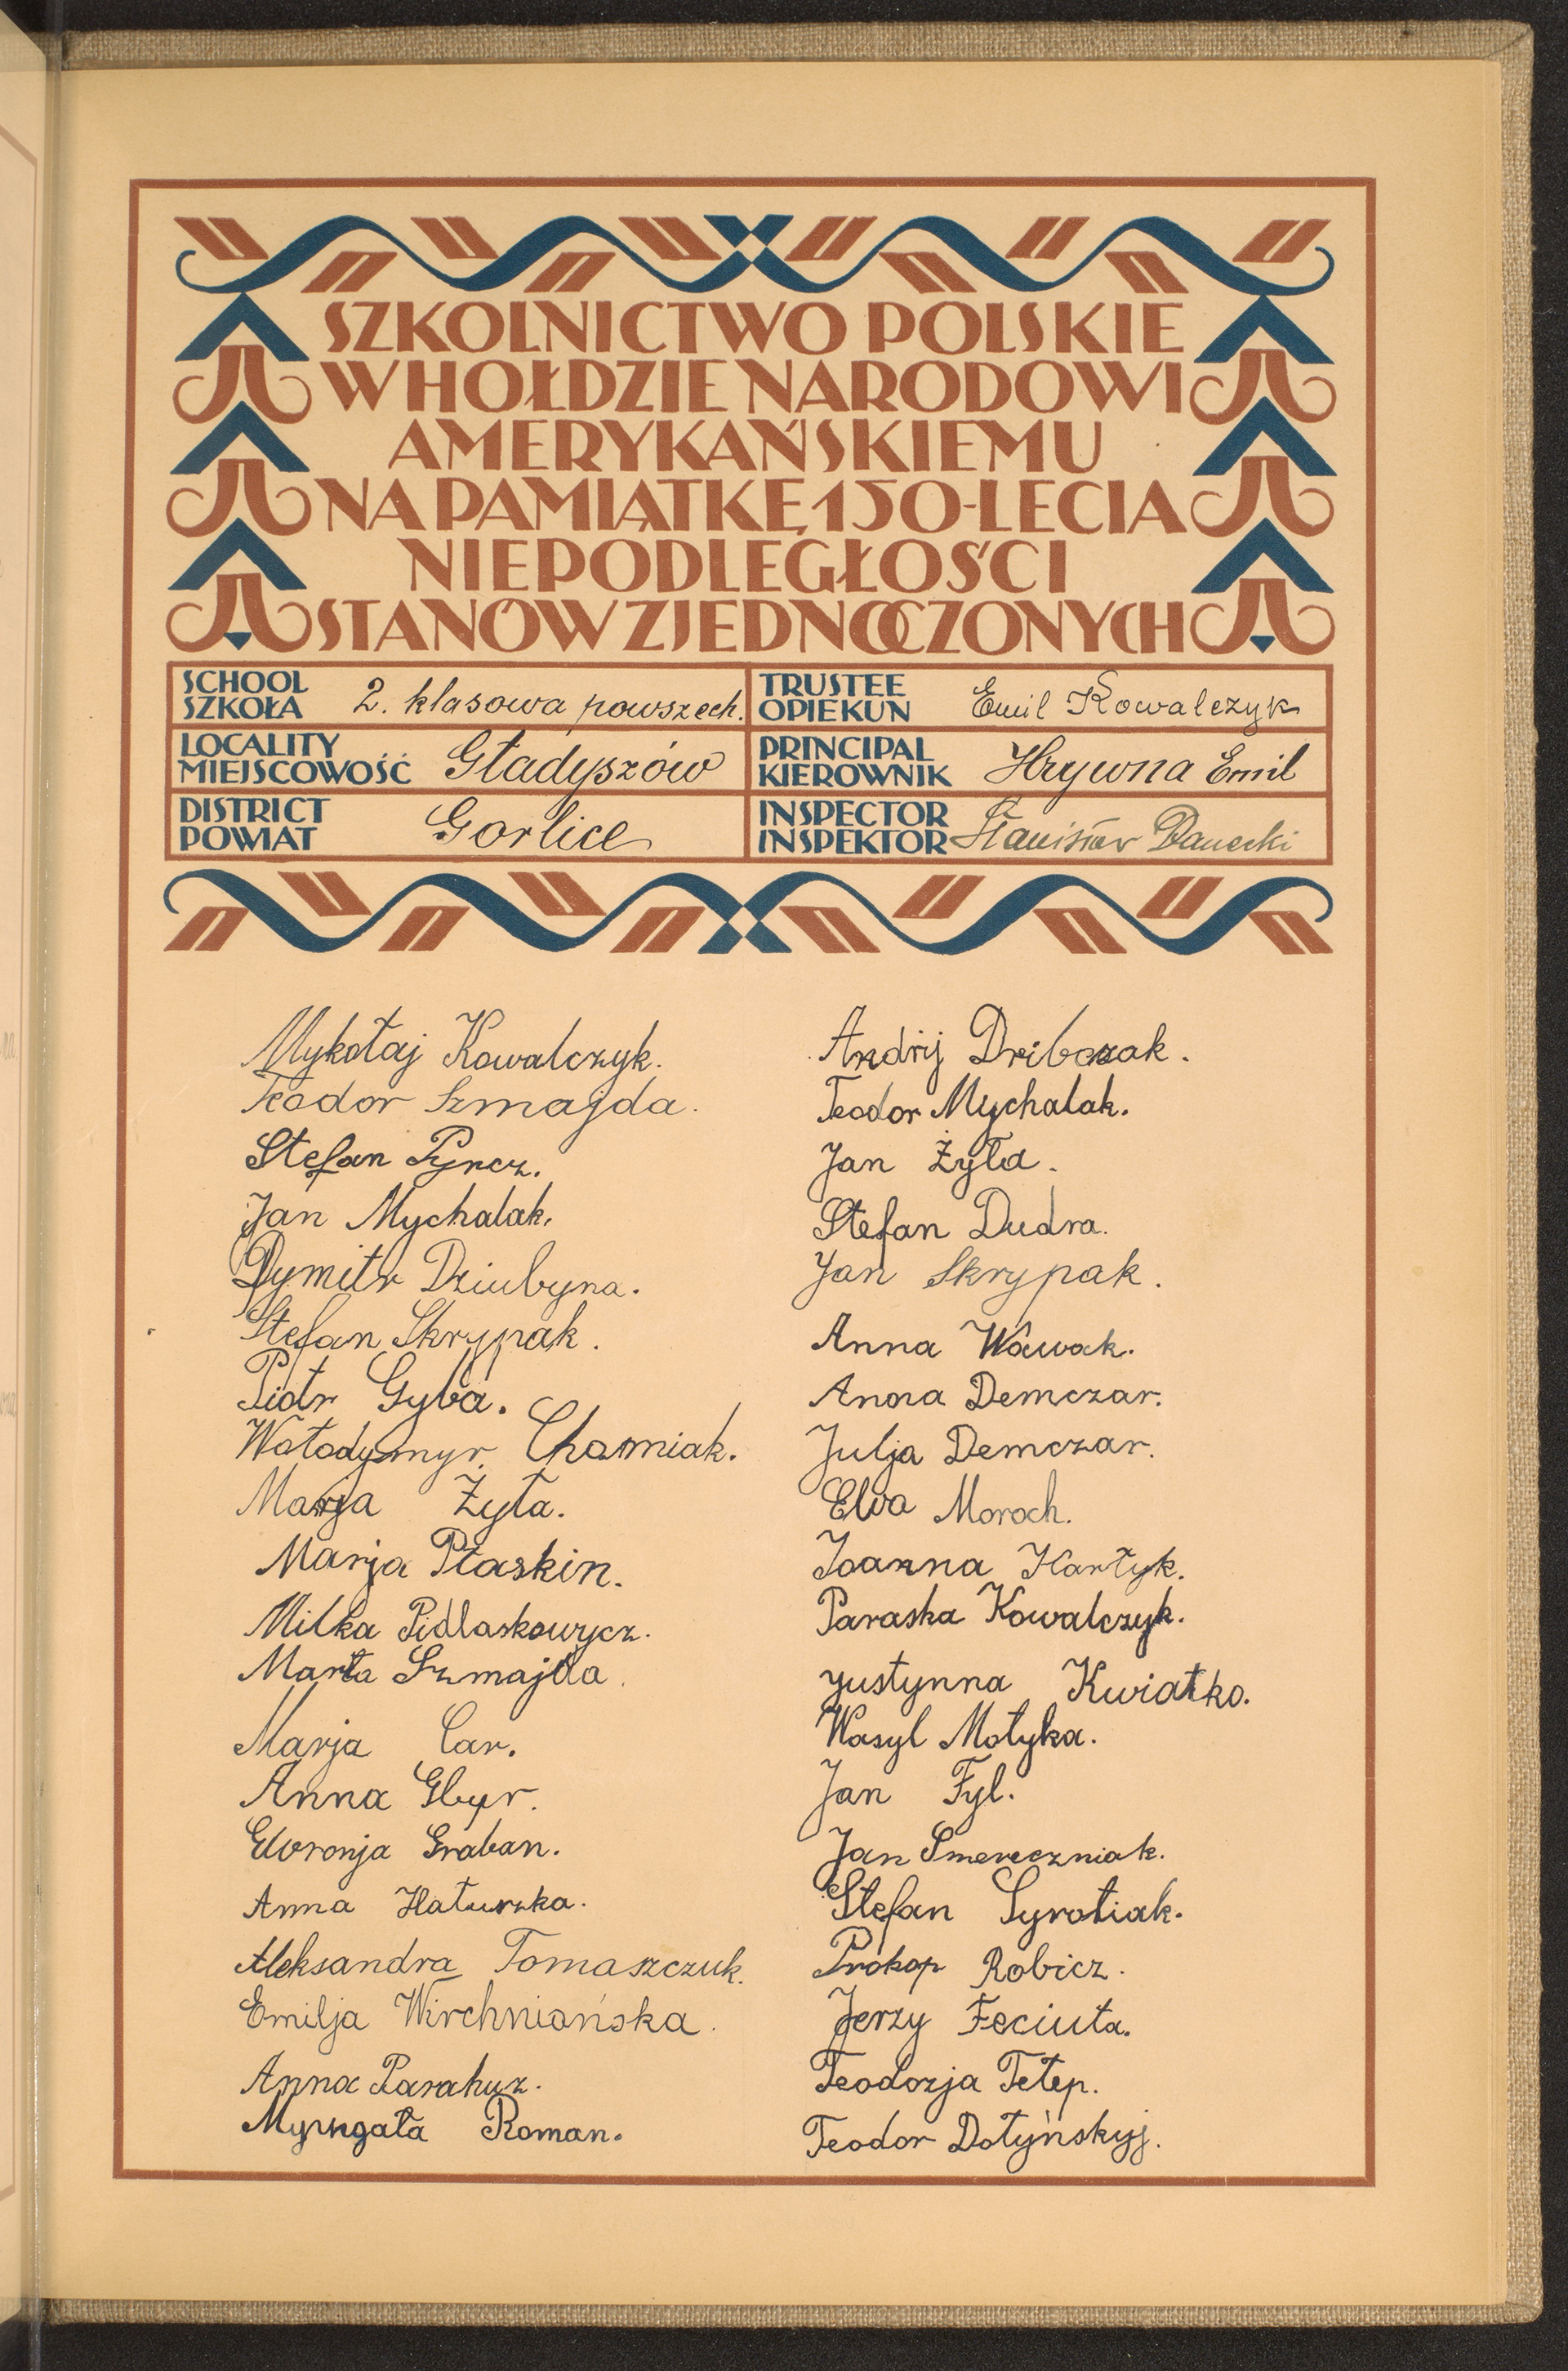 SZKOLNICTWO POLSKIE
W HOŁDZIE NARODOWI
AMERYKAŃSKIEMU
NA PAMIĄTKĘ 150-LECIA
NIEPODLEGŁOŚCI
STANÓW ZJEDNOCZONYCH
SCHOOL
SZKOŁA 2. klasowa powszech.
TRUSTEE
OPIEKUN Emil Kowalczyk
LOCALITY
MIEJSCOWOŚĆ Gładyszów
PRINCIPAL
KIEROWNIK Hrywna Emil
DISTRICT
POWIAT Gorlice
INSPECTOR
INSPEKTOR Stanisław Danecki
Mykołaj Kowalczyk.
Teodor Szmajda.
Stefan Pyrcz.
Jan Mychalak.
Dymitr Dziubyna.
Stefan Skrypak.
Piotr Gyba.
Wołodymyr Chomiak.
Marja Żyła.
Marja Ptaskin.
Milka Pidlaskowycz.
Marta Szmajda.
Marja Car.
Anna Gbyr.
Ewronja Graban.
Anna Hatuszka.
Aleksandra Tomaszczuk.
Emilja Wirchniańska.
Anna Parahuz.
Roman.
Andrij Dribczak.
Teodor Mychalak.
Jan Żyła.
Stefan Dudra.
Jan Skrypak.
Anna Wawak.
Anna Demczar.
Julja Demczar.
Ewa Moroch.
Joanna Hartyk.
Paraska Kowalczyk.
Justynna Kwiatko.
Wasyl Motyka.
Jan Fyl.
Jan Smereczniak.
Stefan Syrotiak.
Prokop Robicz.
Jerzy Feciuta.
Teodozja Tetep.
Teodor Dotyńskyj.